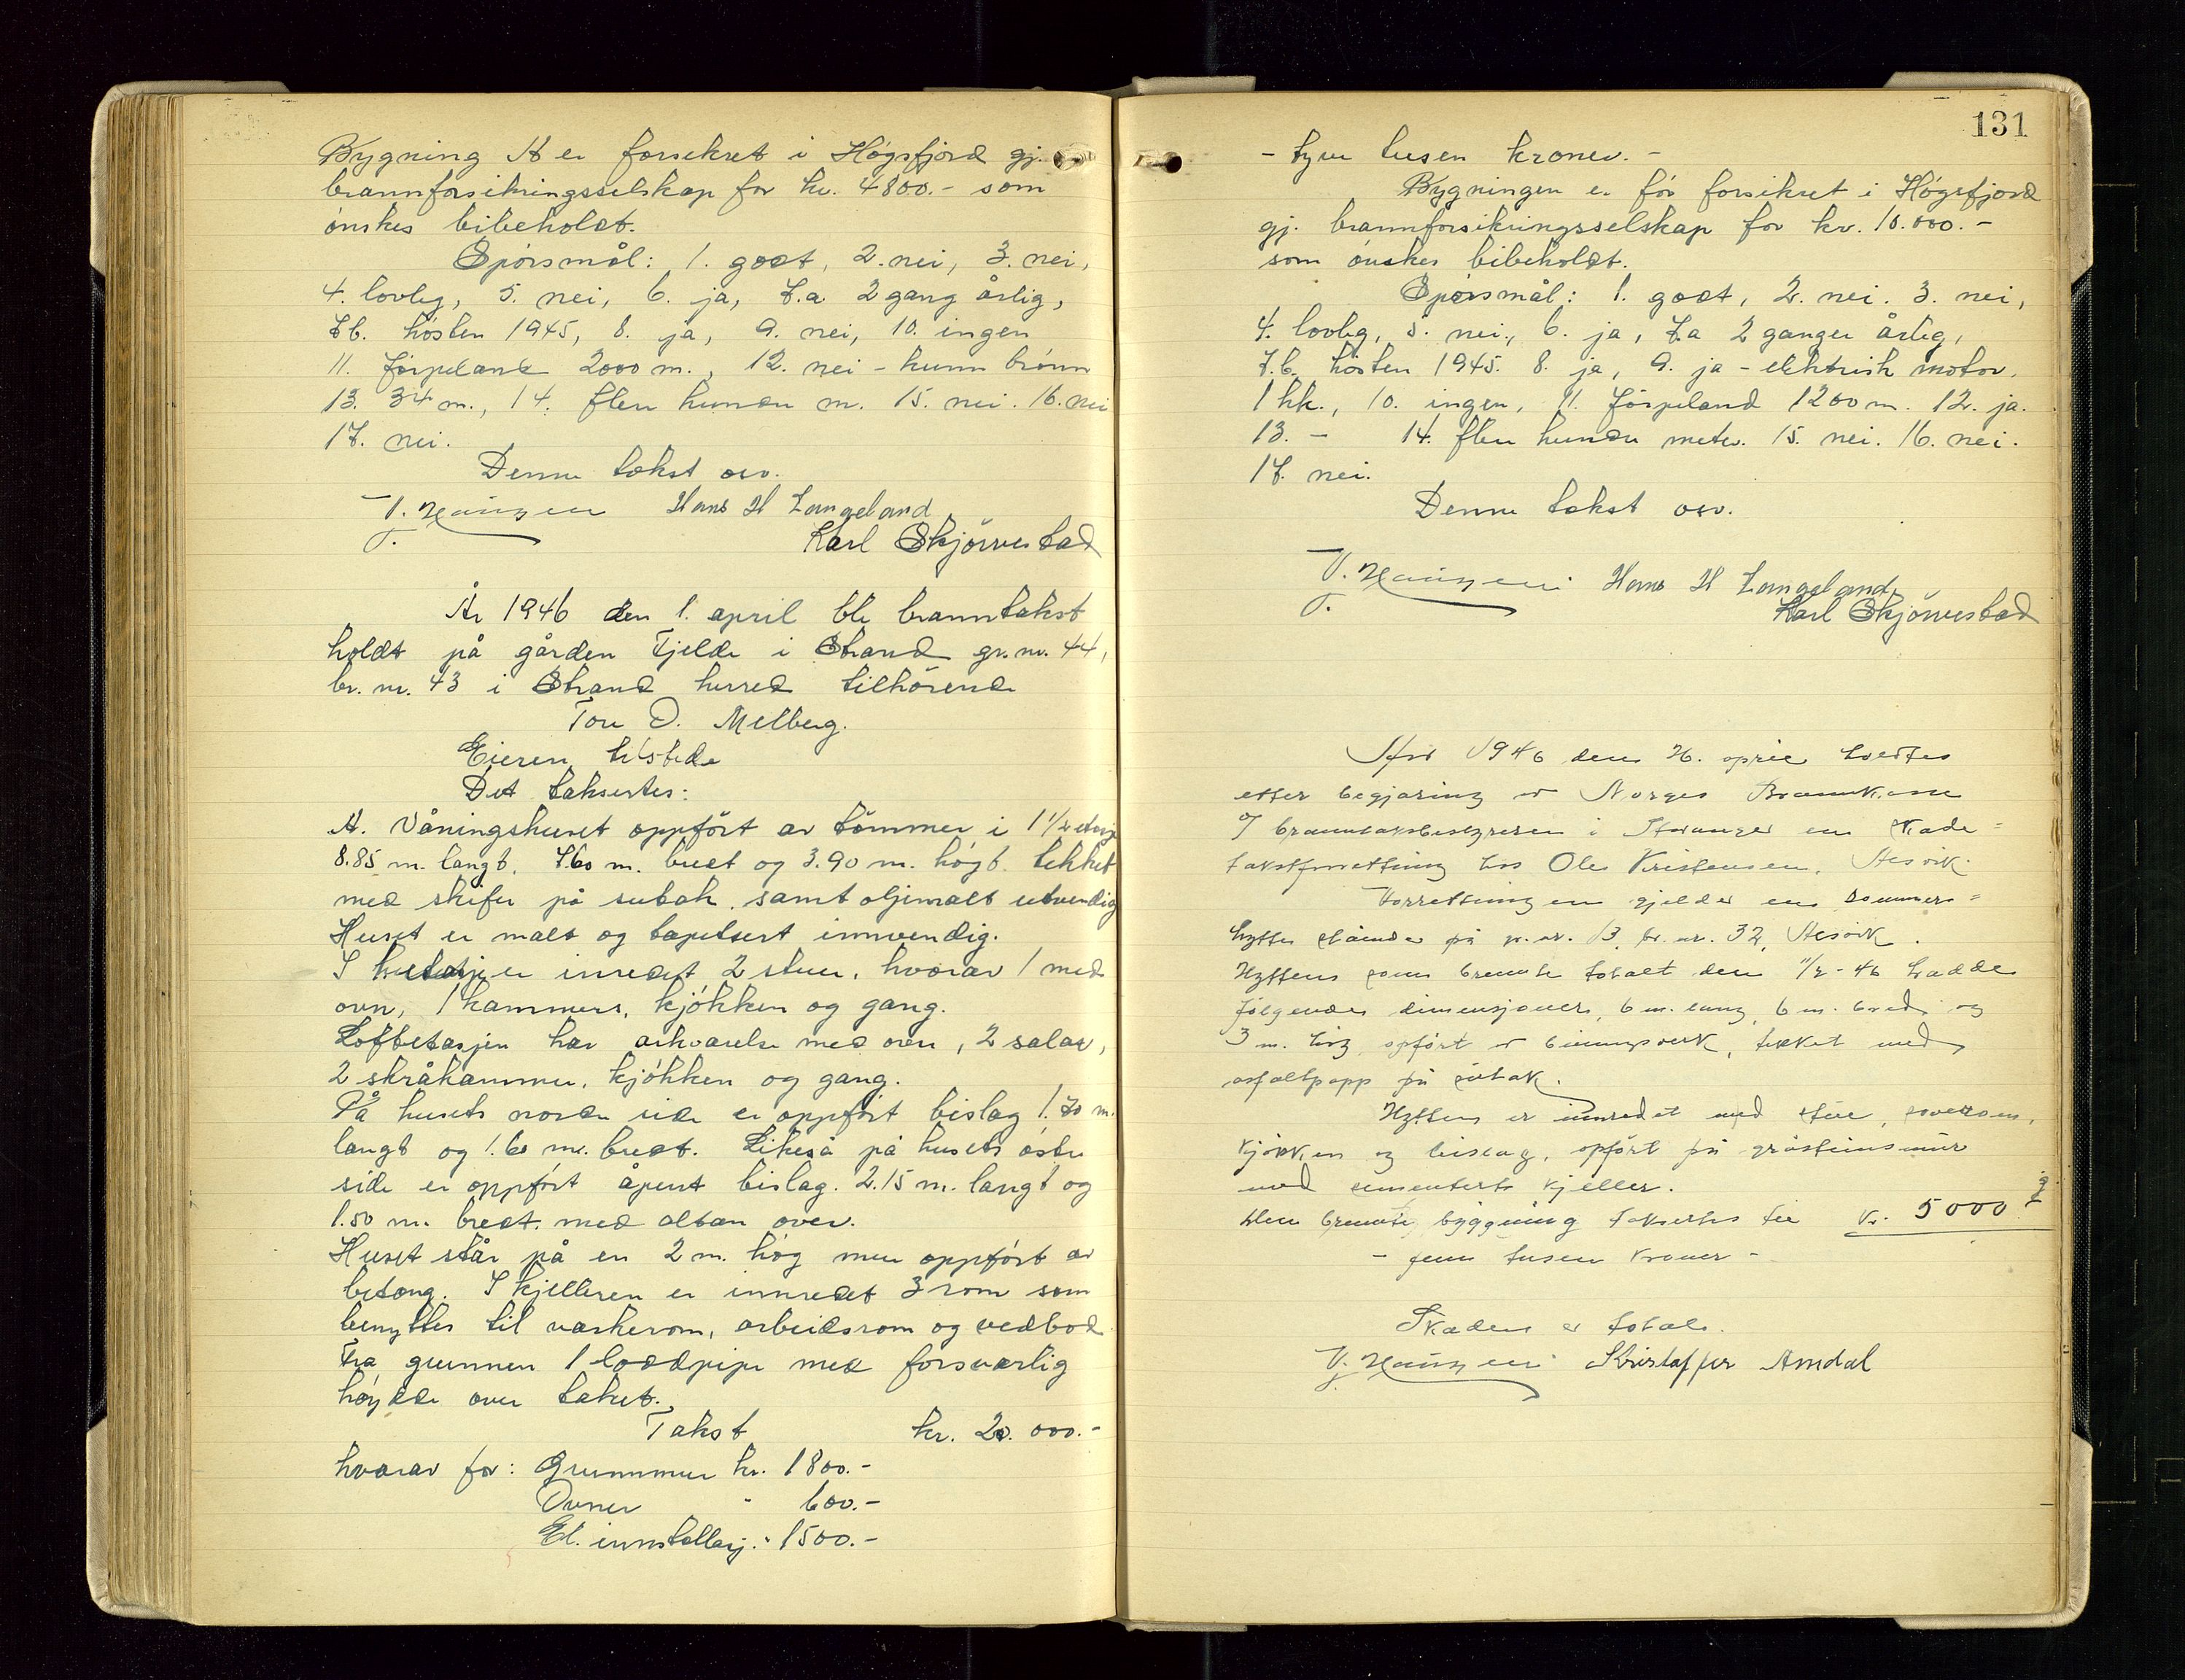 Bygning A er forsekret i Høgsfjord gj.
brannforsikringsselskap for kr. 4800.- som
ønskes bibeholdt.
Spørsmål: 1. godt, 2. nei, 3. nei,
4. lovlig, 5. nei, 6. ja, 7.a. 2 gang årlig,
7b. høsten 1945, 8. ja, 9. nei, 10. ingen
11. Jørpeland 2000 m., 12. nei - kunn brønn
13. 34 m., 14. flere hundre m. 15. nei. 16. nei
17. nei.
Denne takst osv.
Hans H Langeland
Karl Skjørvestad
År 1946 den 1. april ble branntakst
holdt på gården Fjelde i Strand gr. nr. 44,
br. nr. 43 i Strand herred tilhørende
Tore O. Melberg.
Eieren tilstede
Det taksertes:
A. Våningshuset oppført av tømmer i 1 1/2 etasje
8.85 m. langt, 7.60 m. bredt og 3.90 m. høgt. tekket
med skifer på sutak, samt oljemalt utvendig
Huset er malt og tapetsert innvendig.
I første etasje er inredet 2 stuer, hvorav 1 med
ovn, 1 kammers, kjøkken og gang.
Loftetasjen har arkværelse med ovn, 2 salar,
2 skråkammer, kjøkken og gang.
På husets nordre side er oppført bislag 1.70 m.
langt og 1.60 m. bredt. Likeså på husets østre
side er oppført åpent bislag. 2.15 m. langt og
1.50 m. bredt. med altan over.
Huset står på en 2 m. høg mur oppført av
betong. I kjelleren er innredet 3 rom som
benyttes til vaskerom, arbeidsrom og vedbod.
Fra grunnen 1 loddpipe med forsvarlig
høyde over taket.
Takst kr. 20.000.-
hvorav for: Grunnmur kr. 1800.-
Ovner " 600.-
El. innstallasj. " 1500.-
131
- tyve tusen kroner. -
Bygningen er før forsikret i Høgsfjord
gj. brannforsikringsselskap for kr. 10.000.-
som ønskes bibeholdt.
Spørsmål: 1. godt, 2. nei. 3. nei,
4. lovlig, 5. nei., 6. ja, 7.a 2 ganger årlig,
7.b. høsten 1945. 8. ja, 9. ja - elektrisk motor,
1 hk., 10. ingen, 11. Jørpeland 1200 m. 12. ja.
13. - 14. flere hundre meter. 15. nei. 16. nei.
17. nei.
Denne takst osv.
Hans H Langeland
Karl Skjørvestad
År 1946 den 26. april holdtes
etter begjæring av Norges Brannkasse
v/ branntakstbestyreren i Stavanger en skade=
takstforretning hos Ole Kristensen,
Forretningen gjelder en sommer=
hytte stående på gr. nr. 13, br. nr. 32,
Hyttens som brendte totalt den 11/2-46 hadde
følgende dimensjoner, 6 m. lang, 6 m. bred og
3 m. høg, opført av bindingsverk, tekket med
asfaltpapp på sutak.
Hytten er innredet med stue, soverom,
kjøkken og bislag, opført på gråsteinsmur
med sementert kjeller.
Den brendte byggning takseres til kr. 5000.-
- fem tusen kroner -
Skaden er total.
Kristoffer Amdal